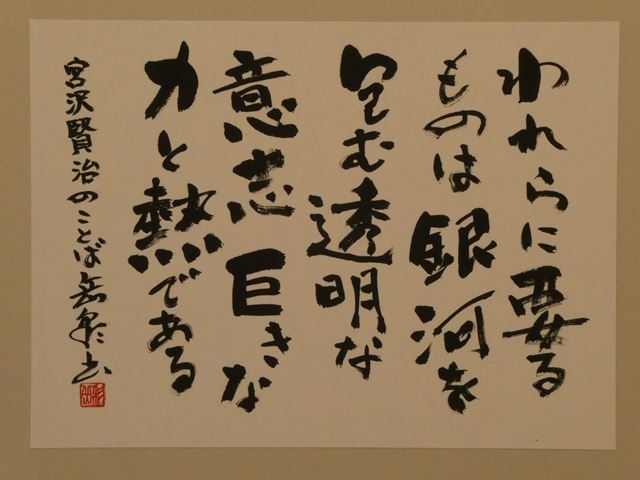 われらに要る
ものは銀河を
包む透明な
意志 巨きな
力と熱である
宮沢賢治のことば